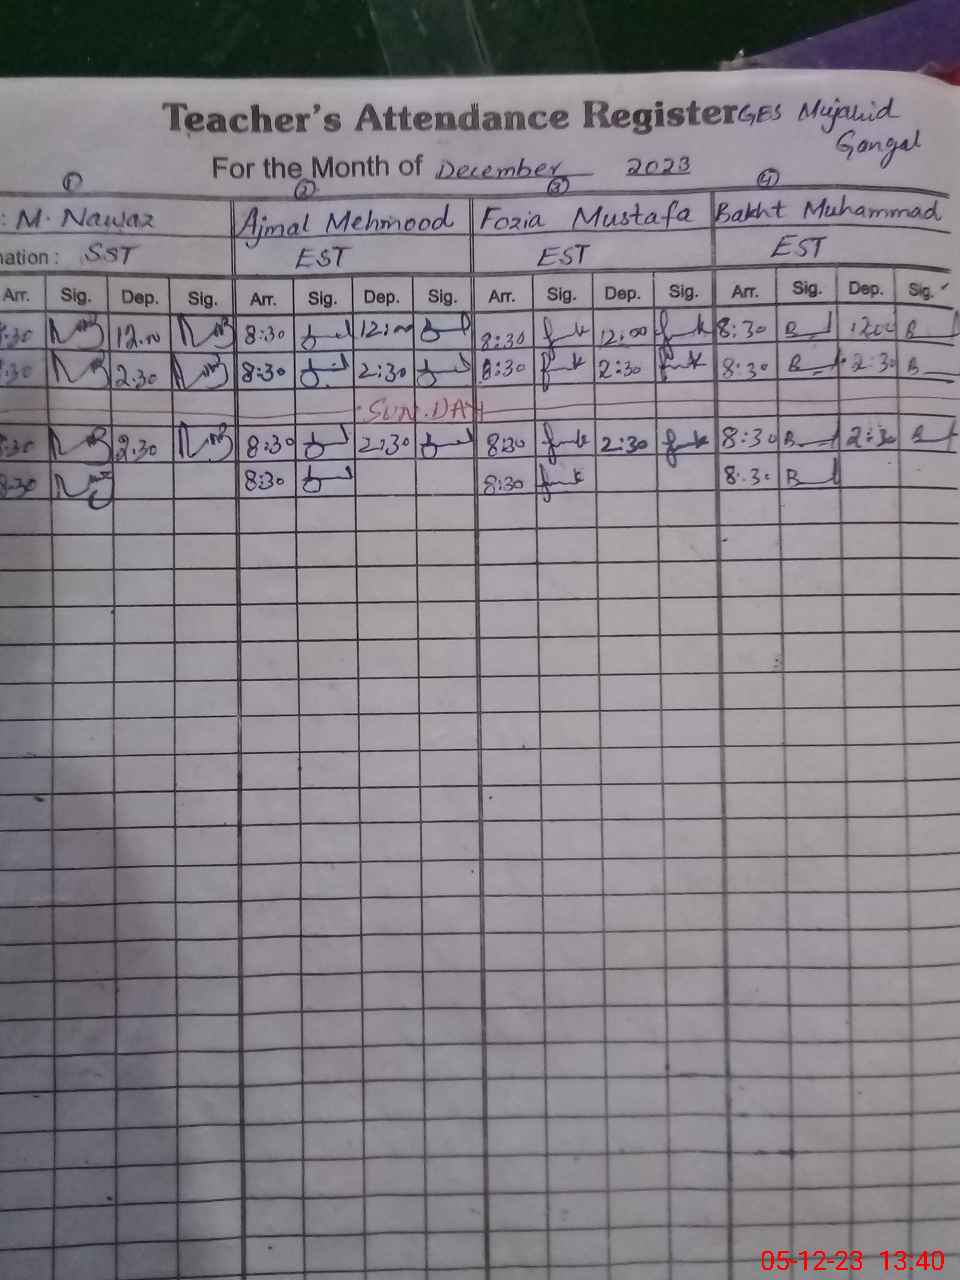 Teacher's Attendance Register GES Mujahid
Gongal
For the Month of December 2023
1 2 3 4
: M. Nawaz Ajmal Mehmood Fozia Mustafa Bakht Muhammad
nation : SST EST EST EST
Arr. Sig. Dep. Sig. Arr. Sig. Dep. Sig. Arr. Sig. Dep. Sig. Arr. Sig. Dep. Sig.
:30 12.00 8:30 12:00 8:30 12:00 8:30 1200
:30 2.30 8:30 2:30 8:30 2:30 8:30 2:30
SUN.DAY
:30 2.30 8:30 2:30 8:30 2:30 8:30 2:30
8:30 8:30 8:30 8:30
05-12-23 13:40